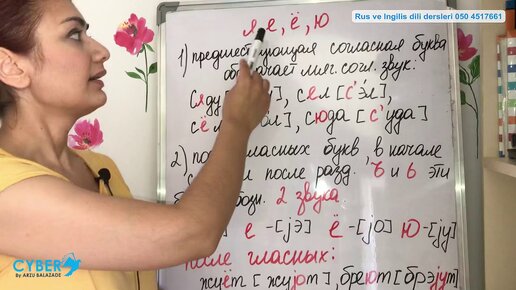 Rus ve Ingilis dili dersleri 050 4517661
я, е, ё, ю
1) предшествующая согласная буква
мяг. согл. звук:
сяду ], сел [с'эл],
сё ], сюда [с'уда]
2) гласных букв, в начале
после разд. ъ и ь эти
2 звука
е -[jэ] ё -[jо] ю -[jу]
после гласных:
жуёт [жуjот], бреют [брэjут]
CYBER
By ARZU BALAZADE